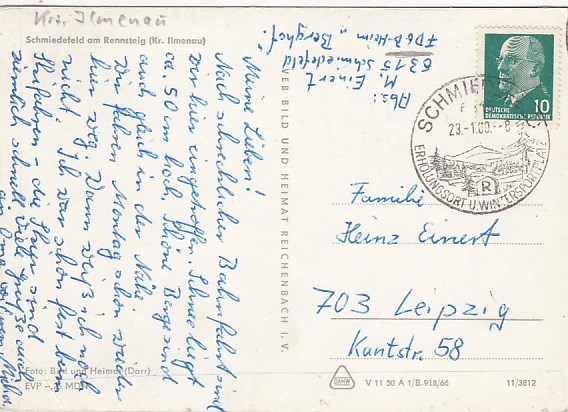 Krs. Ilmenau
Schmiedefeld am Rennsteig (Kr. Ilmenau)
Meine Lieben!
Nach schrecklicher Bahnfahrt sind
wir hier eingetroffen. Schnee liegt
ca. 50 cm hoch. Schöne Berge sind
auch gleich in der Nähe.
Wir fahren Montag schon wieder
hier weg. Wann weiß ich noch
nicht. Ich war schon fest beim
Skifahren - die Skier sind
ziemlich schnell. Viele Grüße auch
an Oma von
Abs.:
M. Einert
6315 Schmiedefeld
FDGB-Heim „Berghof"
VEB BILD UND HEIMAT REICHENBACH I. V.
10
DEUTSCHE
DEMOKRATISCHE REPUBLIK
23.-1.
ERHOLUNGSORT U. WINTERSPORTPLATZ
R
Familie
Heinz Einert
703 Leipzig
Kantstr. 58
Foto: Bild und Heimat (Darr)
EVP
V 11 50 A 1/B.918/66
11/3812